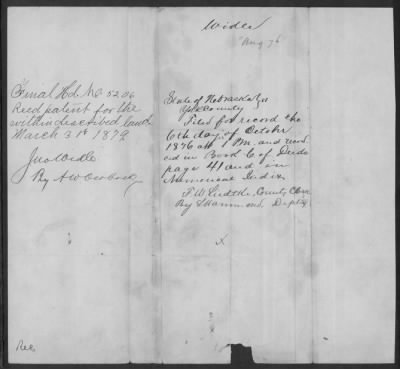 Wider
Aug 76
Final Hd. No 5206
Recd patent for the
within described land
March 31st 1879
Jno Wider
By
State of Nebraska } ss
York County
Filed for record the
6th day of October
1876 at 1 P.M. and record
ed in Book C. of Deeds
page 41 and in
Numerical Index
County Clerk
By Deputy
x
Rec